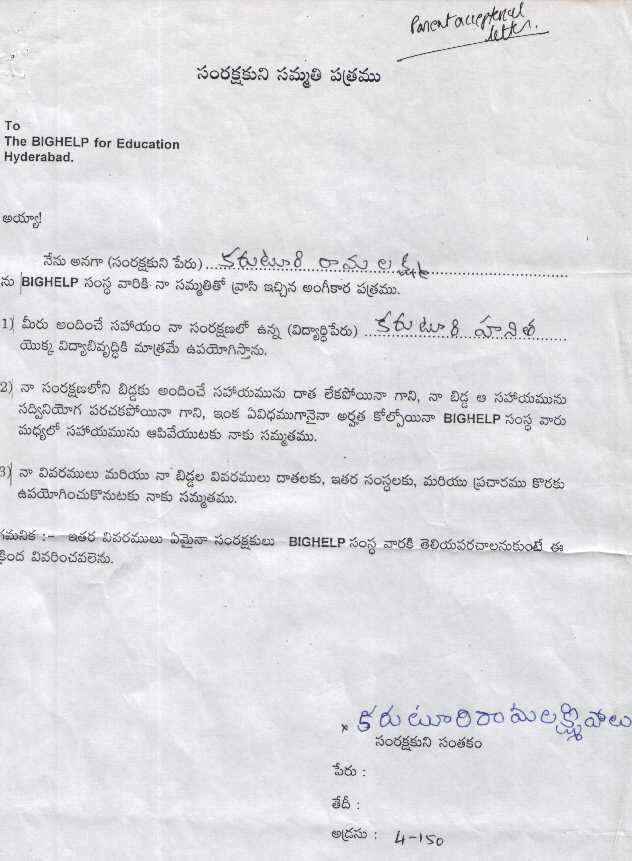 Parent acceptencal
letter.
సంరక్షకుని సమ్మతి పత్రము
To
The BIGHELP for Education
Hyderabad.
అయ్యా!
నేను అనగా (సంరక్షకుని పేరు) కరుటూరి రామ లక్ష్మి
ను BIGHELP సంస్థ వారికి నా సమ్మతితో వ్రాసి ఇచ్చిన అంగీకార పత్రము.
1) మీరు అందించే సహాయం నా సంరక్షణలో ఉన్న (విద్యార్థిపేరు) కరుటూరి హనిత
యొక్క విద్యాబివృద్ధికి మాత్రమే ఉపయోగిస్తాను.
2) నా సంరక్షణలోని బిడ్డకు అందించే సహాయమును దాత లేకపోయినా గాని, నా బిడ్డ ఆ సహాయమును
సద్వినియోగ పరచకపోయినా గాని, ఇంక ఏవిధముగానైనా అర్హత కోల్పోయినా BIGHELP సంస్థ వారు
మధ్యలో సహాయమును ఆపివేయుటకు నాకు సమ్మతము.
3) నా వివరములు మరియు నా బిడ్డల వివరములు దాతలకు, ఇతర సంస్థలకు, మరియు ప్రచారము కొరకు
ఉపయోగించుకొనుటకు నాకు సమ్మతము.
గమనిక :- ఇతర వివరములు ఏమైనా సంరక్షకులు BIGHELP సంస్థ వారకి తెలియపరచాలనుకుంటే ఈ
క్రింద వివరించవలెను.
x కరుటూరి రామలక్ష్మి
సంరక్షకుని సంతకం
పేరు :
తేదీ :
అడ్రసు : 4-150